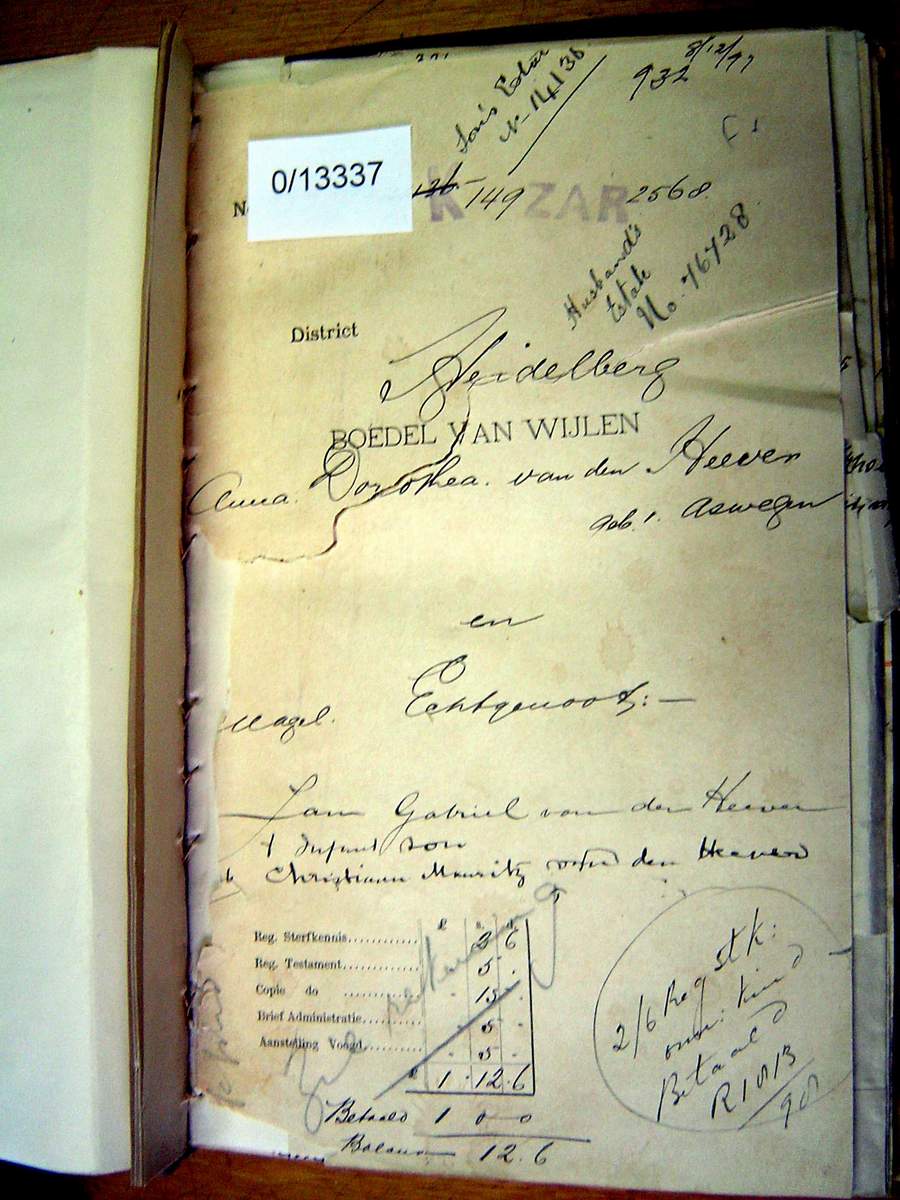 8/12/97
932
Estate
No 14138
0/13337
136 149 2568
K ZAR
Husband's
Estate
No. 76728
District
Heidelberg
BOEDEL VAN WIJLEN
Anna Dorothea van den Heever
geb. v. Aswegen
en
nagel. Echtgenoot:—
Gabriel van den Heever
+ Infant son
Christiaan Mauritz van den Heever
£ s. d.
Reg. Sterfkennis............ 2 6
Reg. Testament............ 5 .
Copie do ............ - 15 -
Brief Administratie............ - 5 -
Aanstelling Voogd............ - 5 -
£ 1 . 12 . 6
Betaald 1 0 0
Balans 12 . 6
rekening
2/6 Reg stk:
kind
Betaald